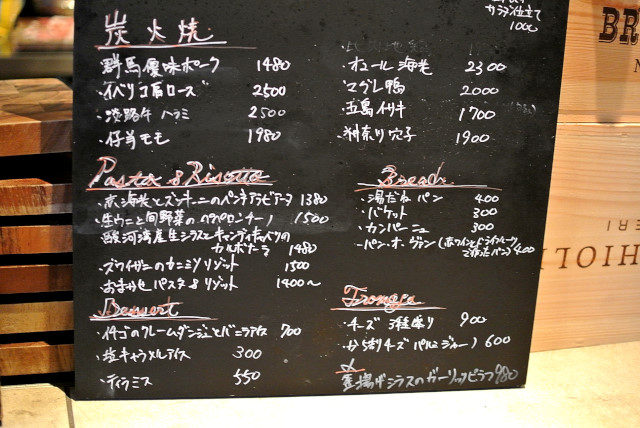 カラテ仕立て
1000
炭火焼
群馬優味ポーク 1480
・イベリコ肩ロース 2500
・淡路牛 ハラミ 2500
・仔羊モモ 1980
・オマール海老 2300
・マグレ鴨 2000
・五島イサキ 1700
・穴子 1900
Pasta & Risotto
・赤海老とズッキーニのペンネアラビアータ 1380
・生ウニと旬野菜のペペロンチーノ 1500
・駿河湾産生シラスとキャンティキャベツの
カルボナーラ 1480
・ズワイガニのカニミソリゾット 1500
・おまかせパスタ&リゾット 1400〜
Bread
・湯だねパン 400
・バケット 300
・カンパーニュ 300
・パン・オ・ヴァン(赤ワインとドライフルーツ
で作ったパン) 400
Dessert
・イチゴのクレームダンジュとバニラアイス 700
・塩キャラメルアイス 300
・ティラミス 550
Fromage
・チーズ 3種盛り 900
・かち割りチーズ パルミジャーノ 600
釜揚げシラスのガーリックピラフ 980
BR
CHIOL
ERI